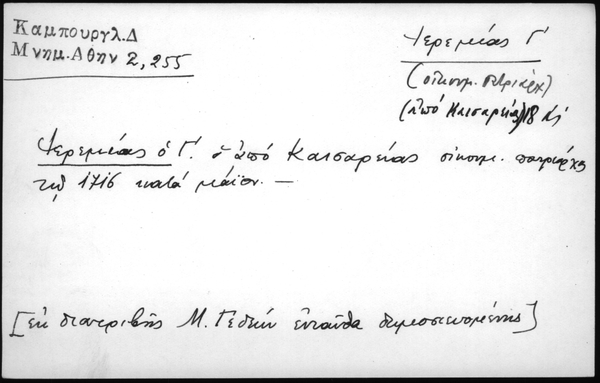 Καμπουργλ.Δ
Μνημ.Αθην 2, 255
Ἱερεμίας Γ΄
(οἰκουμ. Πτριάρχ)
(ἀπό Καισαρείας) 18 αἰ
Ἱερεμίας ὁ Γ΄. ὁ ἀπό Καισαρείας οἰκουμ. πατριάρχης
τῷ 1716 κατά μάϊον. —
[ἐκ διατριβῆς Μ. Γεδεών ἐνταῦθα δημοσιευομένης]